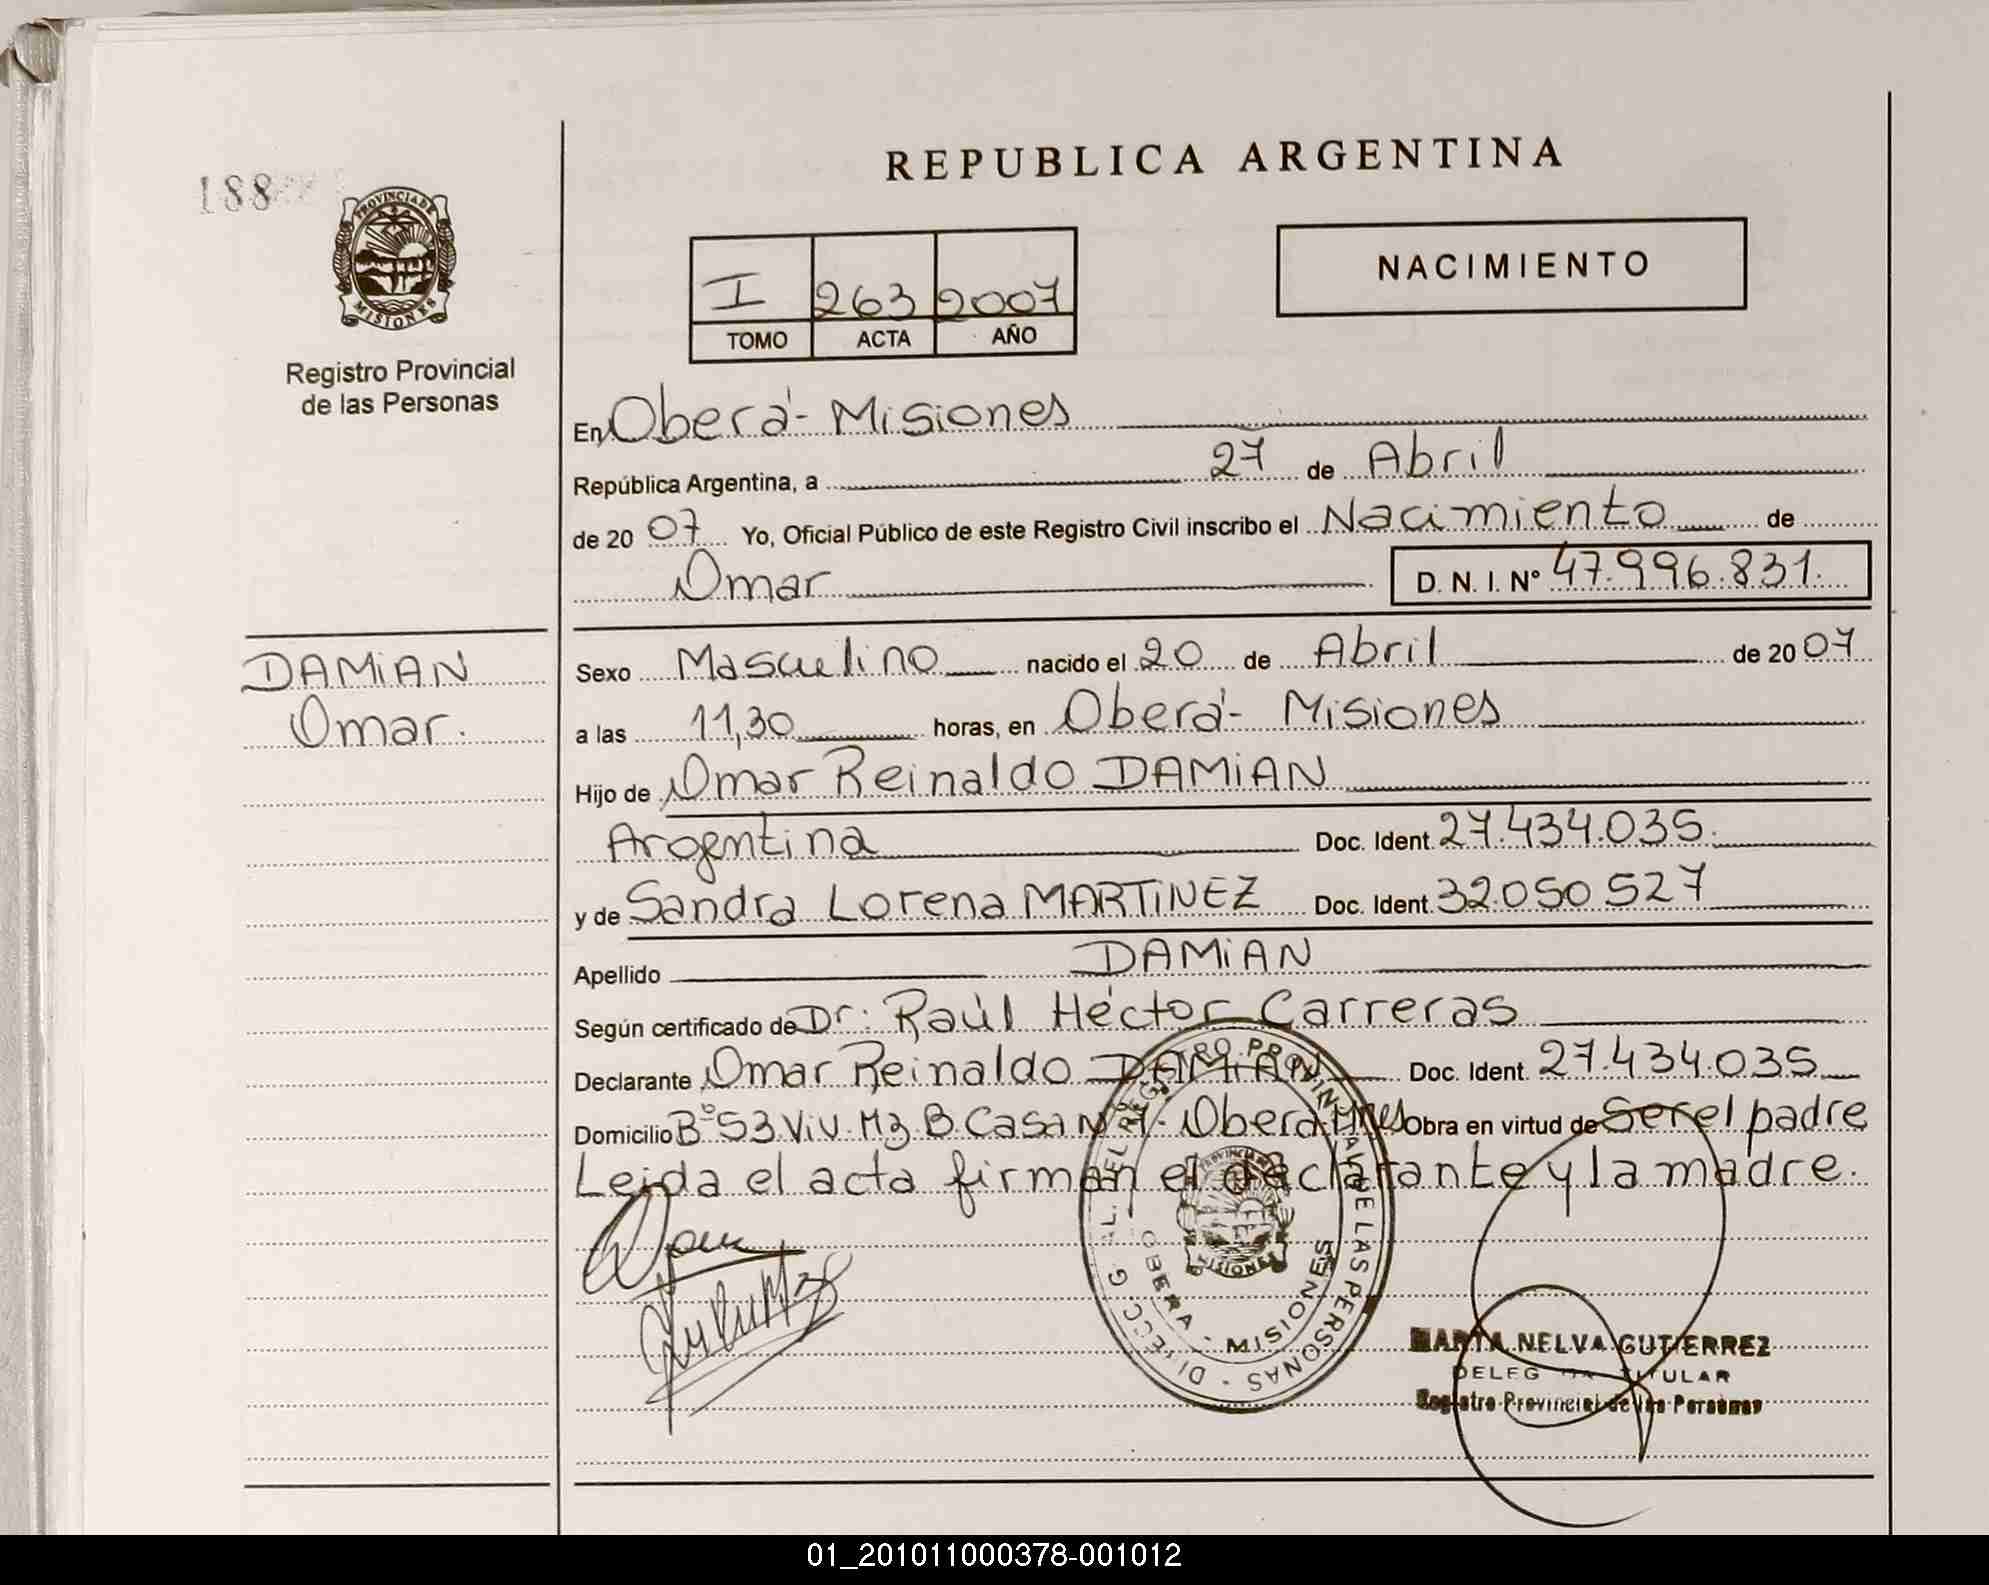 188
PROVINCIA DE
MISIONES
Registro Provincial
de las Personas
DAMIAN
Omar.
REPUBLICA ARGENTINA
I 263 2007
TOMO ACTA AÑO
NACIMIENTO
En Oberá - Misiones
República Argentina, a 27 de Abril
de 2007 Yo, Oficial Público de este Registro Civil inscribo el Nacimiento de
Omar D. N. I. Nº 47.996.831.
Sexo Masculino nacido el 20 de Abril de 2007
a las 11,30 horas, en Oberá - Misiones
Hijo de Omar Reinaldo DAMIAN
Argentina Doc. Ident. 27.434.035.
y de Sandra Lorena MARTINEZ Doc. Ident. 32.050.527
Apellido DAMIAN
Según certificado de Dr: Raúl Héctor Carreras
Declarante Omar Reinaldo DAMIAN Doc. Ident. 27.434.035
Domicilio Bº 53 Viv. Mz B Casa Oberá Mnes Obra en virtud de Ser el padre
Leida el acta firman el declarante y la madre.
REGISTRO PROVINCIAL DE LAS PERSONAS
OBERA - MISIONES
PROVINCIA DE
MISIONES
MARTA NELVA GUTIERREZ
TITULAR
Registro Provincial de las Personas
01_201011000378-001012